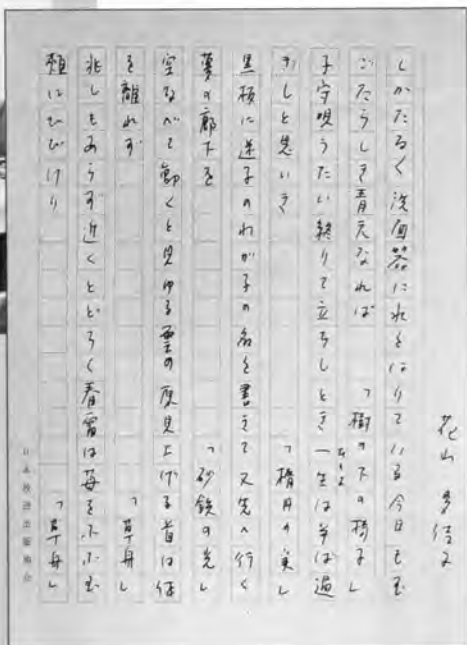 花山 多佳子
しかたなく洗面器に水をはりている今日もむ
ごたらしき青天なれば 『樹の下の椅子』
子守唄うたい終りて立ちしとき一生は半ば過
ひとよ
ぎしと思いき 『楕円の実』
黒板に迷子のわが子の名を書きて又先へ行く
夢の廊下を 『砂鉄の光』
空なべて動くと見ゆる雲の 見上げる首は体
を離れず 『草舟』
兆しもあらず近くとどろく春雷は苺をふふむ
頬にひびけり 『草舟』
日本放送出版協会